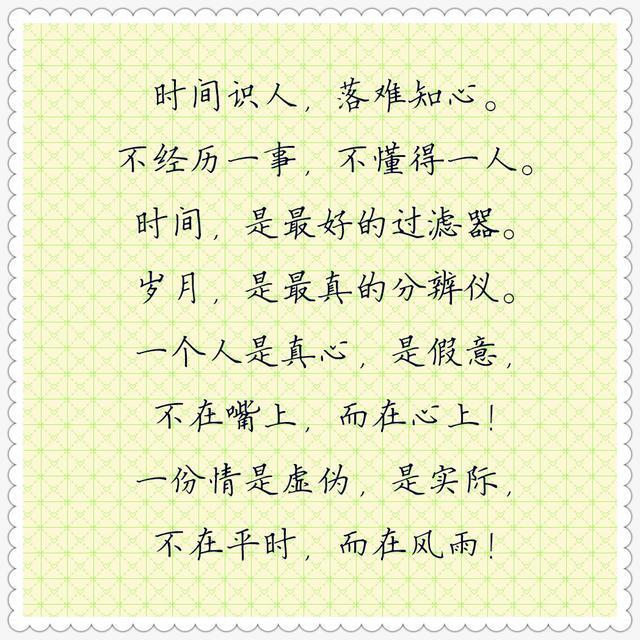 时间识人，落难知心。
不经历一事，不懂得一人。
时间，是最好的过滤器。
岁月，是最真的分辨仪。
一个人是真心，是假意，
不在嘴上，而在心上！
一份情是虚伪，是实际，
不在平时，而在风雨！